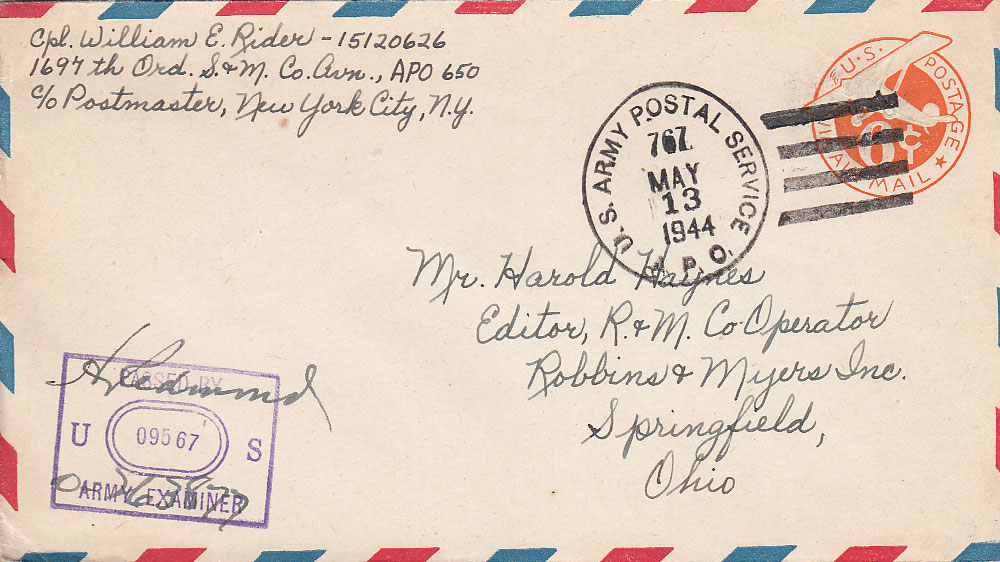 Cpl. William E. Rider - 15120626
1697 th Ord. S. & M. Co. Avn., APO 650
c/o Postmaster, New York City, N.Y.
U.S. POSTAGE
VIA AIR MAIL
6¢
U.S. ARMY POSTAL SERVICE
767
MAY
13
1944
A.P.O.
Mr. Harold Haynes
Editor, R. & M. Co-Operator
Robbins & Myers Inc.
Springfield,
Ohio
PASSED BY
U 09567 S
ARMY EXAMINER